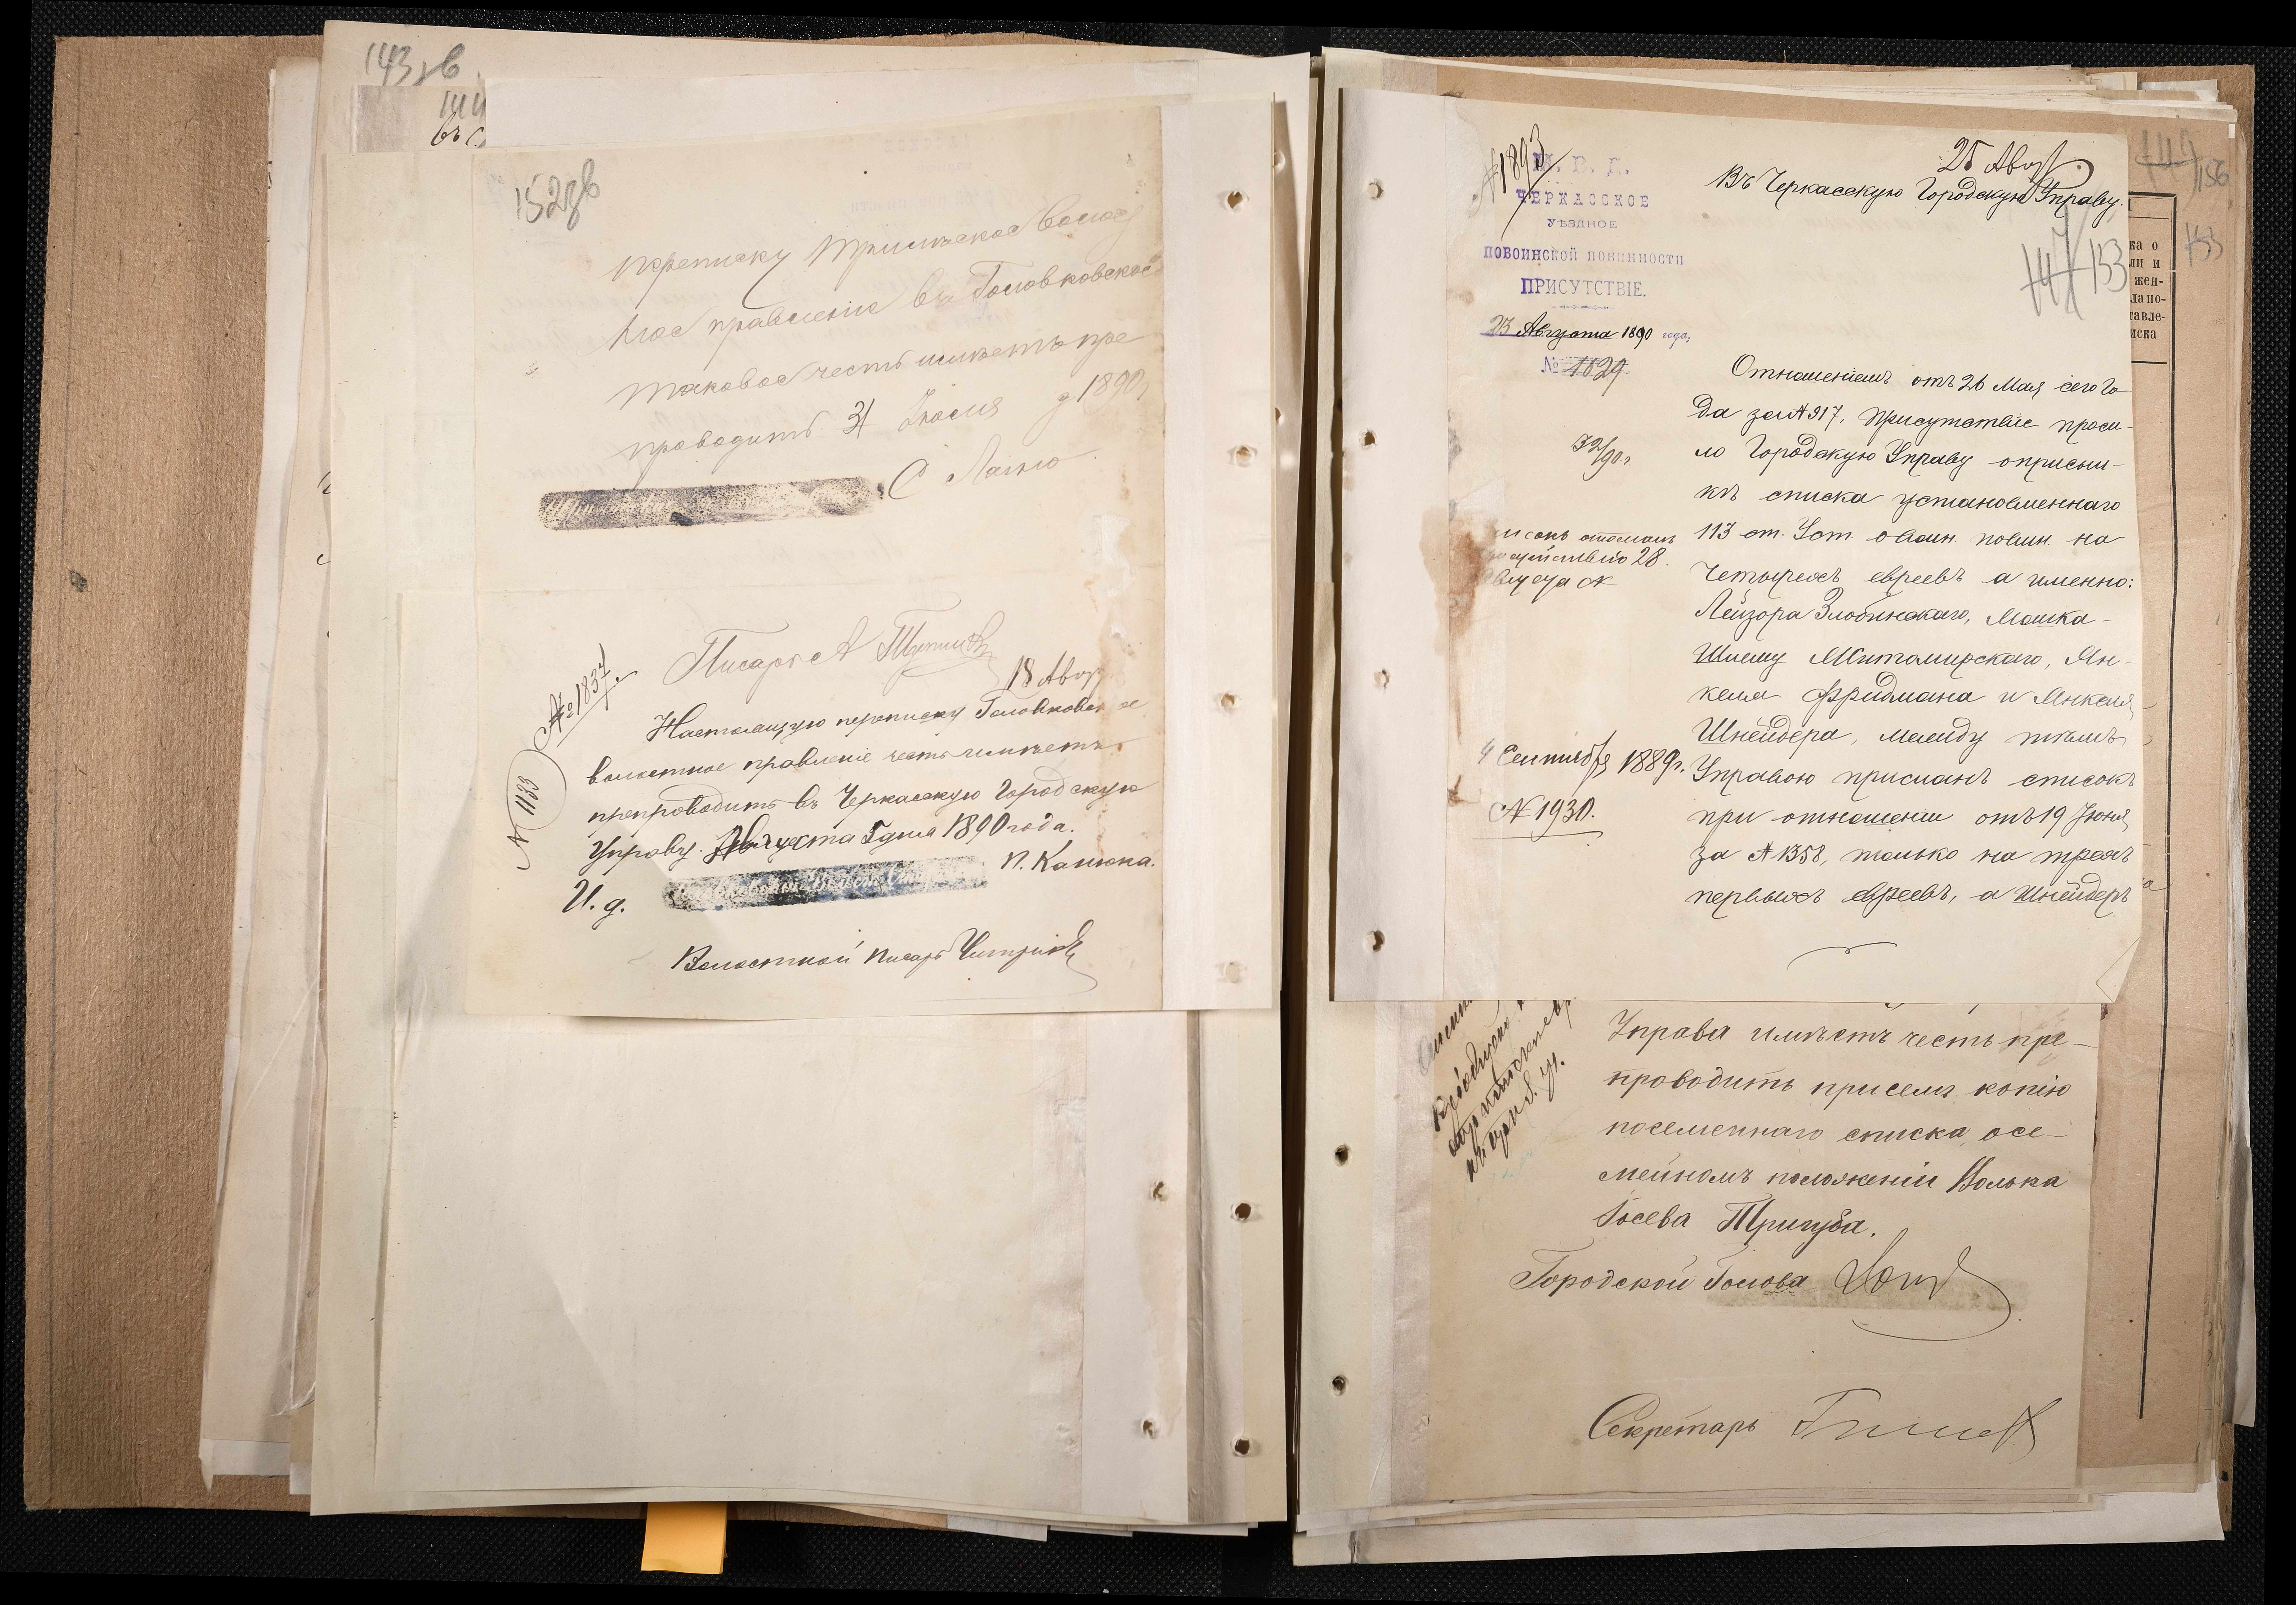 143 зв
144
въ с
152 зв
переписку Трилѣское Волост
ное правленіе въ Головковское
таковое честь имѣетъ пре
проводить 31 Іюля д 1890 г
С
Писарь А
№ 1837
18 Авг
Настоящую переписку Головковское
волостное правленіе честь имѣетъ
препроводить въ Черкасскую Городскую
Управу. Августа 5 дня 1890 года.
№ 1133
И. д.
П. Канюка.
Волостной Писарь
№ 1893
М. В. Д.
ЧЕРКАССКОЕ
УѢЗДНОЕ
ПОВОИНСКОЙ ПОВИННОСТИ
ПРИСУТСТВІЕ.
23 Августа 1890 года,
№ 1029
32/90 г.
25 Авг
Въ Черкасскую Городскую Управу.
147 153
Отношеніемъ отъ 26 Мая сего го-
да за № 917, Присутствіе проси-
ло Городскую Управу о присыл-
кѣ списка установленнаго
113 ст. Уст. о воин. повин. на
четырехъ евреевъ а именно:
Лейзора Злобинскаго, Мошка-
Шлему Житомирскаго, Ян-
келя Фридмана и Янкеля
Шнейдера, между тѣмъ
Управою присланъ списокъ
при отношеніи отъ 19 Іюня
за № 1358, только на трехъ
первыхъ евреевъ, а Шнейдеръ
28
4 Сентября 1889 г.
№ 1930.
149 156
153
ка о
ли и
жен-
ла по-
тавле-
иска
Управа имѣетъ честь пре-
проводить при семъ копію
посемейнаго списка, о се-
мейномъ положеніи Волька
Іосева Тригуба.
Городской Голова
Секретарь